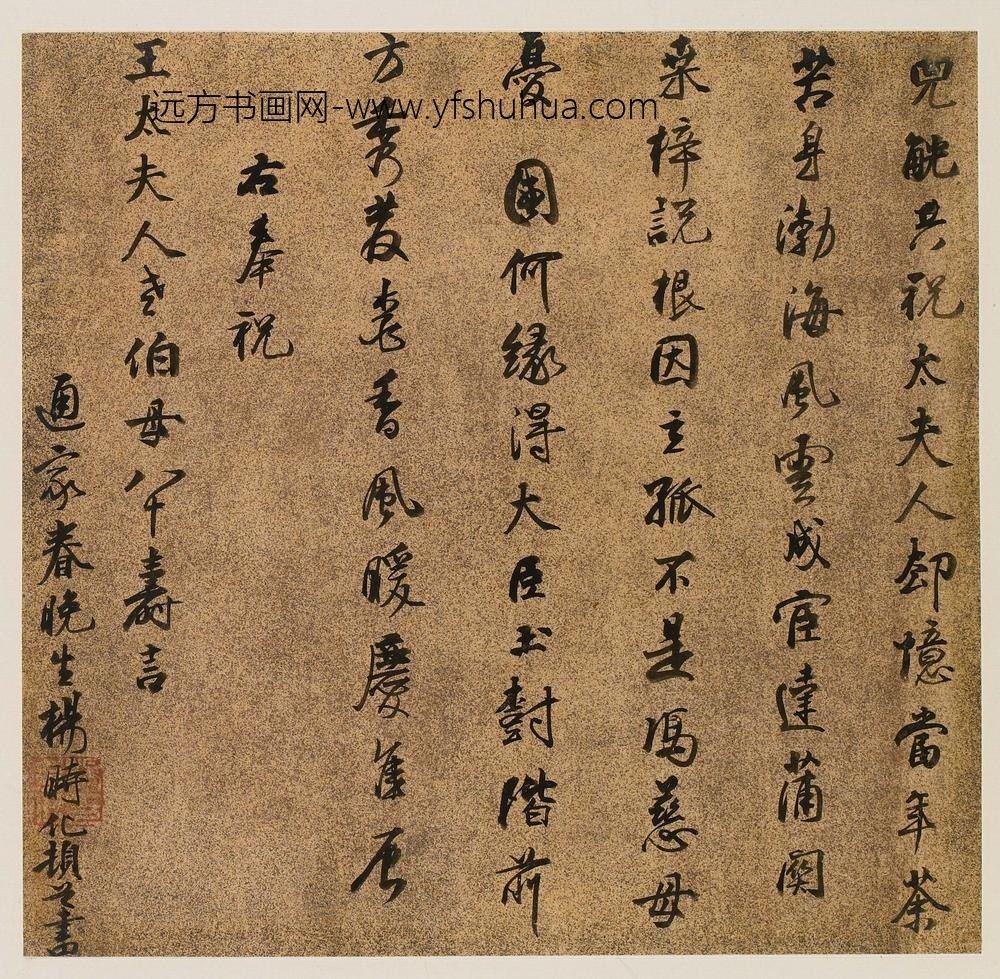 兕觥共祝太夫人却憶當年茶
苦身渤海風雲成宦達蒲關
桑梓説根因立孤不是馮慈母
憂國何緣得大臣玉樹階前
方秀發萱香風暖慶隹辰
右奉祝
王太夫人老伯母八十壽言
通家春晚生楊時化頓首書
远方书画网-www.yfshuhua.com